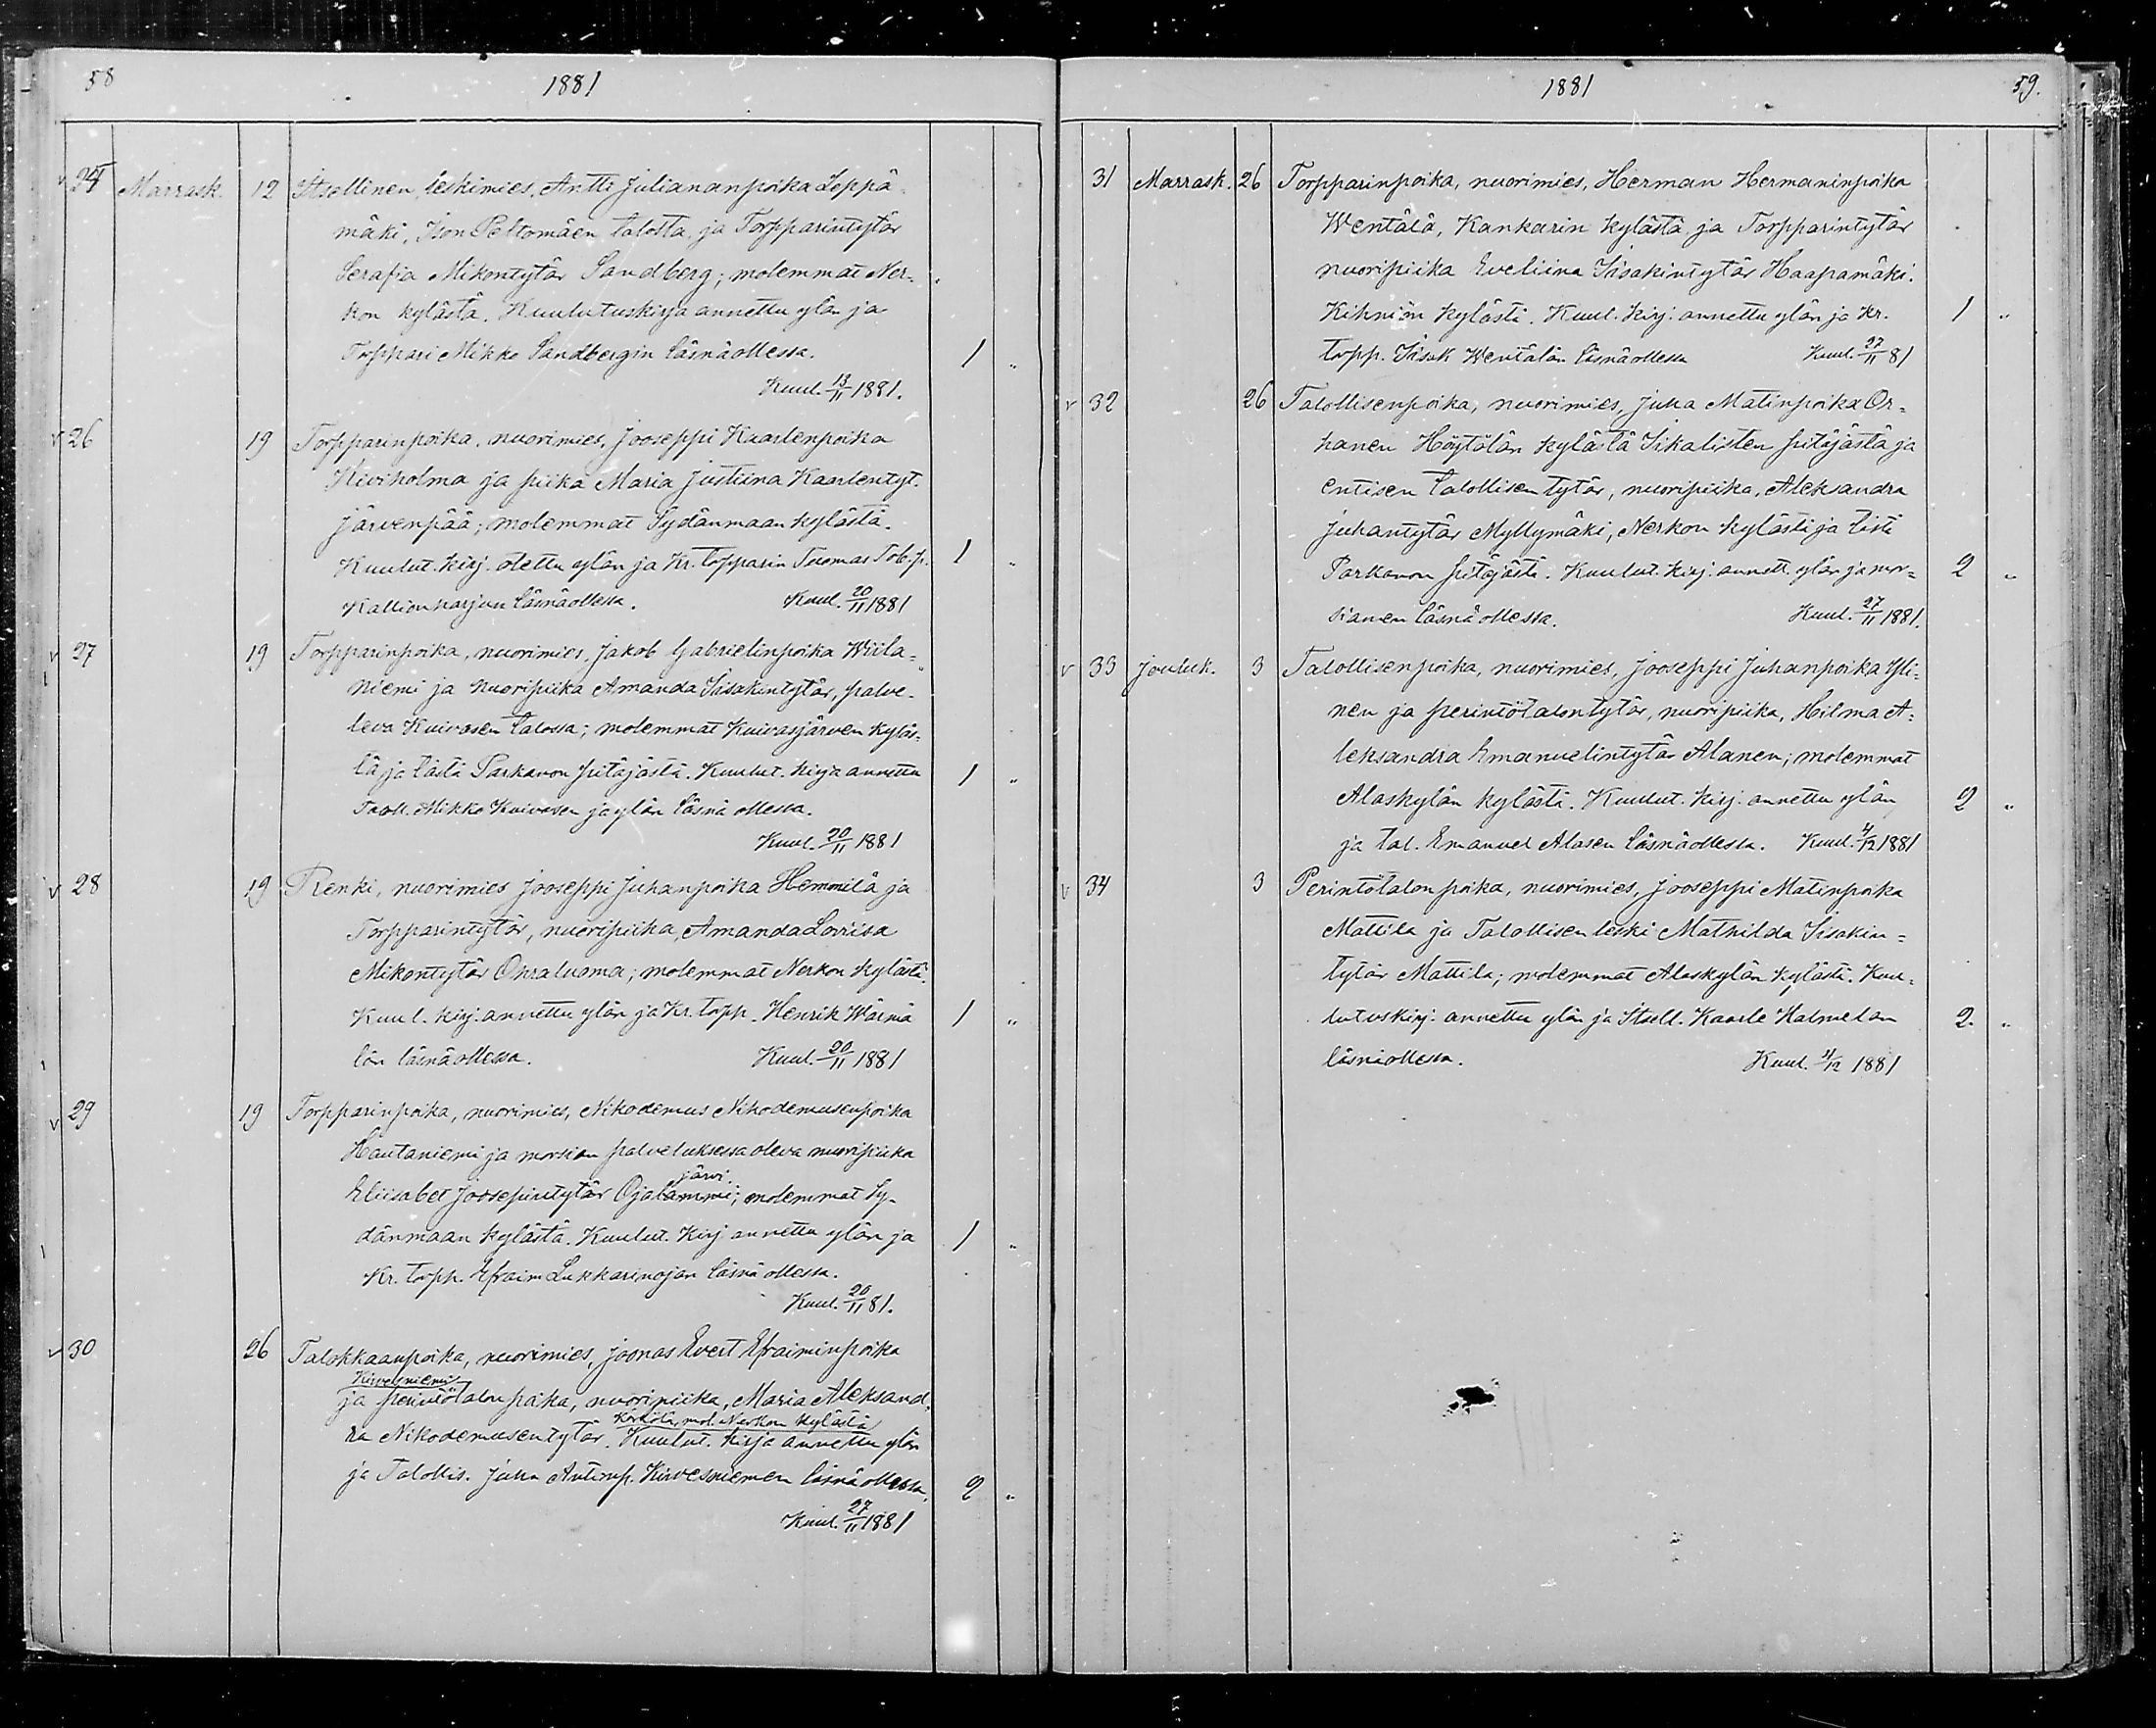 58
1881
24 Marrask. 12 Itsellinen, leskimies, Antti Juliananpoika Leppä-
mäki, Ison Peltomäen talosta, ja Torpparintytär
Serafia Mikontytär Sandberg; molemmat Ner-
kon kylästä. Kuulutuskirja annettu ylön ja
Torppari Mikko Sandbergin läsnäollessa. 1 "
Kuul. 13/11 1881.
v 26 19 Torpparinpoika, nuorimies, Jooseppi Kaarlenpoika
Kiviholma ja piika Maria Justiina Kaarlentyt.
Järvenpää; molemmat Sydänmaan kylästä.
Kuulut. kirj. otettu ylön ja Kr. torpparin Tuomas Tob.p. 1 "
Kallionharjun läsnäollessa. Kuul. 20/11 1881
v 27 19 Torpparinpoika, nuorimies, Jakob Gabrielinpoika Wiila=
niemi ja nuoripiika Amanda Iisakintytär, palve-
leva Kuivasen talossa; molemmat Kuivasjärven kyläs-
tä ja tästä Parkanon pitäjästä. Kuulut. kirja annettu 1 "
Taoll. Mikko Kuivasen ja ylön läsnä ollessa.
Kuul. 20/11 1881
v 28 19 Renki, nuorimies Jooseppi Juhanpoika Hemmilä ja
Torpparintytär, nuoripiika, Amanda Loviisa
Mikontytär Ohraluoma; molemmat Nerkon kylästä.
Kuul. kirj. annettu ylön ja Kr. torpp. Henrik Wärmä 1 "
län läsnäollessa. Kuul. 20/11 1881
v 29 19 Torpparinpoika, nuorimies, Nikodemus Nikodemusenpoika
Hautaniemi ja morsian palveluksessa oleva nuoripiika
järvi
Eliisabet Joosepintytär Ojalammi; molemmat Sy-
dänmaan kylästä. Kuulut. Kirj annettu ylön ja 1 "
Kr. torpp. Efraim Lukkarinojan läsnä ollessa.
Kuul. 20/11 81.
v 30 26 Talokkaanpoika, nuorimies, Joonas Evert Efraiminpoika
Kirvesniemi
ja perintötalon poika, nuoripiika, Maria Aleksand-
Körkölä, mol. Nerkon kylästä
ra Nikodemusentytär. Kuulut. kirja annettu ylön
ja Talollis. Juha Antinp. Kirvesniemen läsnäollessa. 2 "
Kuul. 27/11 1881
1881
59.
31 Marrask. 26 Torpparinpoika, nuorimies, Herman Hermaninpoika
Wentälä, Kankarin kylästä ja Torpparintytär
nuoripiika Eveliina Iisakintytär Haapamäki.
Kihniön kylästä. Kuul. kirj. annettu ylön ja Kr. 1 "
torpp. Iisak Wentälän läsnäollessa Kuul. 27/11 81
v 32 26 Talollisenpoika, nuorimies, Juha Matinpoika Or-
hanen Höytölän kylästä Ikalisten pitäjästä ja
entisen talollisen tytär, nuoripiika, Aleksandra
Juhantytär Myllymäki, Nerkon kylästä ja tästä
Parkanon pitäjästä. Kuulut. kirj. annett. ylön ja mor= 2 "
sianen läsnä ollessa. Kuul. 27/11 1881.
v 33 Jouluk. 3 Talollisenpoika, nuorimies, Jooseppi Juhanpoika Yli-
nen ja perintötalontytär, nuoripiika, Hilma A=
leksandra Emanuelintytär Alanen; molemmat
Alaskylän kylästä. Kuulut. kirj. annettu ylön 2 "
ja tal. Emanuel Alasen läsnäollessa. Kuul. 4/12 1881
v 34 3 Perintötalon poika, nuorimies, Jooseppi Matinpoika
Mattila ja Talollisen leski Mathilda Iisakin=
tytär Mattila; molemmat Alaskylän kylästä. Kuu-
lutuskirj. annettu ylön ja Itsell. Kaarle Halmelan 2. "
läsnäollessa. Kuul. 4/12 1881